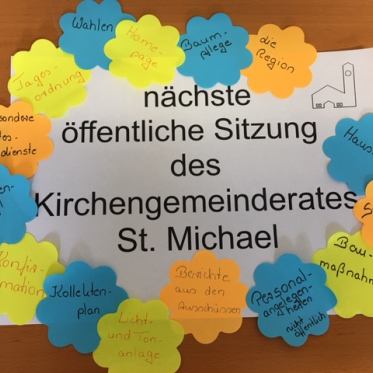 Wahlen
Home-
page
Baum-
pflege
die
Region
Tages-
ordnung
dienste
nächste
öffentliche Sitzung
des
Kirchengemeinderates
St. Michael
Haus
Konfir-
mation
Kollekten-
plan
Licht-
und Ton-
anlage
Berichte
aus den
Ausschüssen
Personal-
angelegen-
heiten
nicht
öffentlich
Bau-
maßnahm